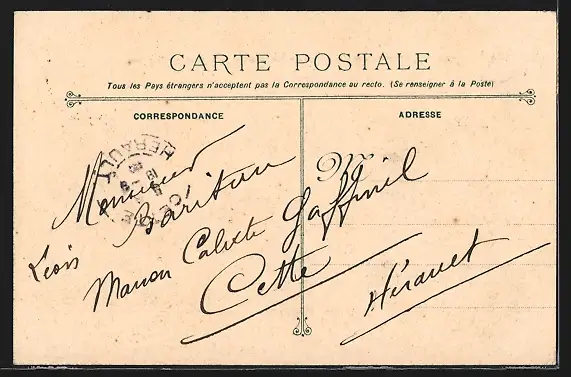 CARTE POSTALE
Tous les Pays étrangers n'acceptent pas la Correspondance au recto. (Se renseigner à la Poste)
CORRESPONDANCE
ADRESSE
HERAULT
CETTE
M
Monsieur
Léon
Maison Calixte Gaffinel
Cette
Hérault